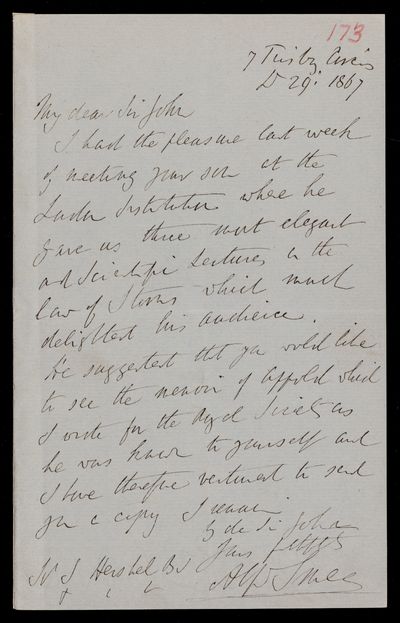 173
7 Finsby Circus
D 29. 1867
My dear Sir John
I had the pleasure last week
of meeting your son at the
London Institution where he
gave us three most elegant
and Scientific Lectures on the
law of Storms which much
delighted his audience.
He suggested that you would like
to see the memoir of Appold which
I wrote for the Royal Society as
he was known to yourself and
I have therefore ventured to send
you a copy I remain
My dr Sir John
Yours
Alf Smee
J Hershel Bt